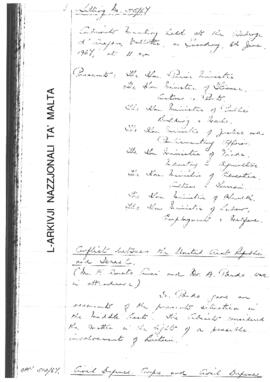 Sitting No. 545/67
Cabinet Meeting held at the Auberge
d'Aragon, Valletta, on Tuesday, 6th June,
1967, at 11 a.m.
Present: The Hon. Prime Minister
The Hon. Minister of Finance,
Customs & Ports
The Hon. Minister of Public
Building & Works
The Hon. Minister of Justice and
Parliamentary Affairs
The Hon. Minister of Trade,
Industry & Agriculture
The Hon. Minister of Education,
Culture & Tourism
The Hon. Minister of Health
The Hon. Minister of Labour,
Employment & Welfare
Conflict between the United Arab Republic
and Israel
in attendance)
gave an
assessment of the present situation in
the Middle East. The Cabinet considered
the matter in the light of a possible
involvement of
Civil Defence Corps and Civil Defence
L-ARKIVJI NAZZJONALI TA' MALTA